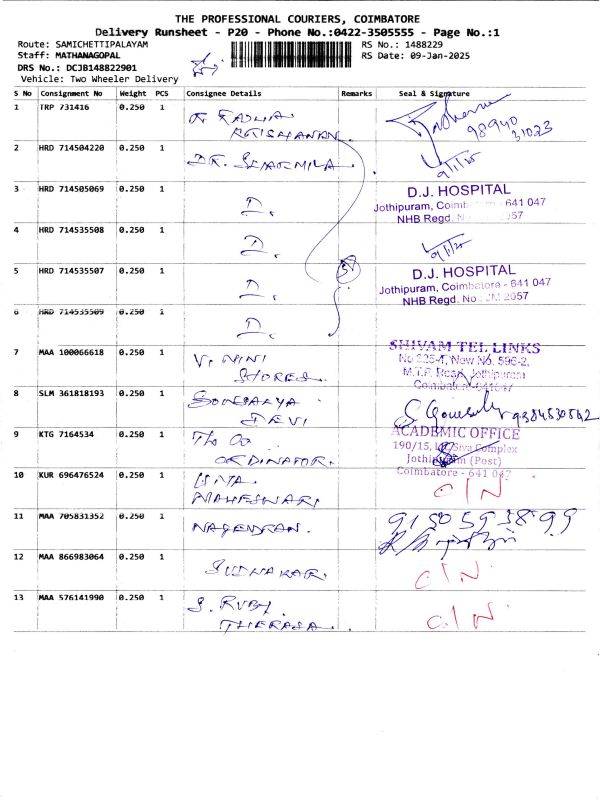 THE PROFESSIONAL COURIERS, COIMBATORE
Delivery Runsheet - P20 - Phone No.:0422-3505555 - Page No.:1
Route: SAMICHETTIPALAYAM RS No.: 1488229
Staff: MATHANAGOPAL RS Date: 09-Jan-2025
DRS No.: DCJB148822901
Vehicle: Two Wheeler Delivery
S No Consignment No Weight PCS Consignee Details Remarks Seal & Signature
1 TRP 731416 0.250 1
98940
31023
2 HRD 714504220 0.250 1 DR. SHARMILA
9/1/25
3 HRD 714505069 0.250 1 D.
D.J. HOSPITAL
Jothipuram, 641 047
NHB Regd. 057
4 HRD 714535508 0.250 1 D. 9/1/25
5 HRD 714535507 0.250 1 D. 5
D.J. HOSPITAL
Jothipuram, Coimbatore - 641 047
NHB Regd. No 2057
6 HRD 714535509 0.250 1 D.
7 MAA 100066618 0.250 1 V. NINI
STORES.
SHIVAM TEL LINKS
New No. 596-2,
M.T.P. Road, Jothipuram
Coimbatore-641047
8 SLM 361818193 0.250 1 SOWSALYA
DEVI
9384530542
9 KTG 7164534 0.250 1 T/O CO
ORDINATOR.
ACADEMIC OFFICE
190/15, Siva Complex
(Post)
Coimbatore - 641 047
10 KUR 696476524 0.250 1
MAHESWARI C/N
11 MAA 705831352 0.250 1 NAGENDRAN.
9150593899
12 MAA 866983064 0.250 1 SUDHAKAR. C/N.
13 MAA 576141990 0.250 1 S. RUBY.
THERASA. C/N